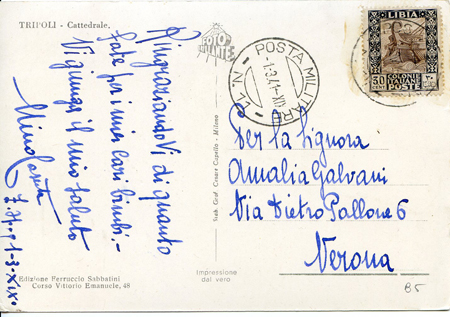 TRIPOLI - Cattedrale.
Ringraziando Vi di quanto
fate per i miei cari bimbi.-
Vi giunga il mio saluto
Edizione Ferruccio Sabbatini
Corso Vittorio Emanuele, 48
FOTO
Ind. Graf. Cesare Capello - Milano
Impressione
dal vero
POSTA MILITARE
N. 11
-1.3.41-XIX
LIBIA
50
COLONIE
ITALIANE
POSTE
Per la Signora
Amalia Galvani
Via Pietro Pallone 6
Verona
B.5